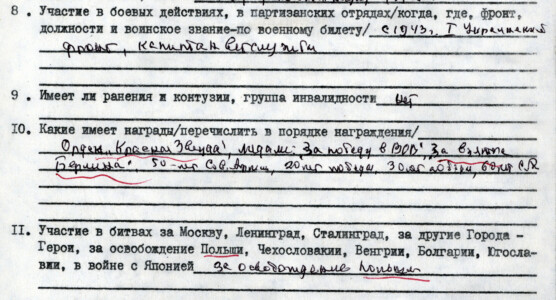 8 . Участие в боевых действиях, в партизанских отрядах/когда, где, фронт,
должности и воинское звание-по военному билету/ с 1943г. I Украинский
фронт, капитан ветслужбы
9 . Имеет ли ранения и контузии, группа инвалидности нет
I0. Какие имеет награды/перечислить в порядке награждения/
Орден „Красная Звезда", медали: „За победу в ВОВ", „За взятие
Берлина". 50-лет Сов. Армии, 20 лет победы, 30 лет победы,
II. Участие в битвах за Москву, Ленинград, Сталинград, за другие Города -
Герои, за освобождение Польши, Чехословакии, Венгрии, Болгарии, Югосла-
вии, в войне с Японией за освобождение Польши